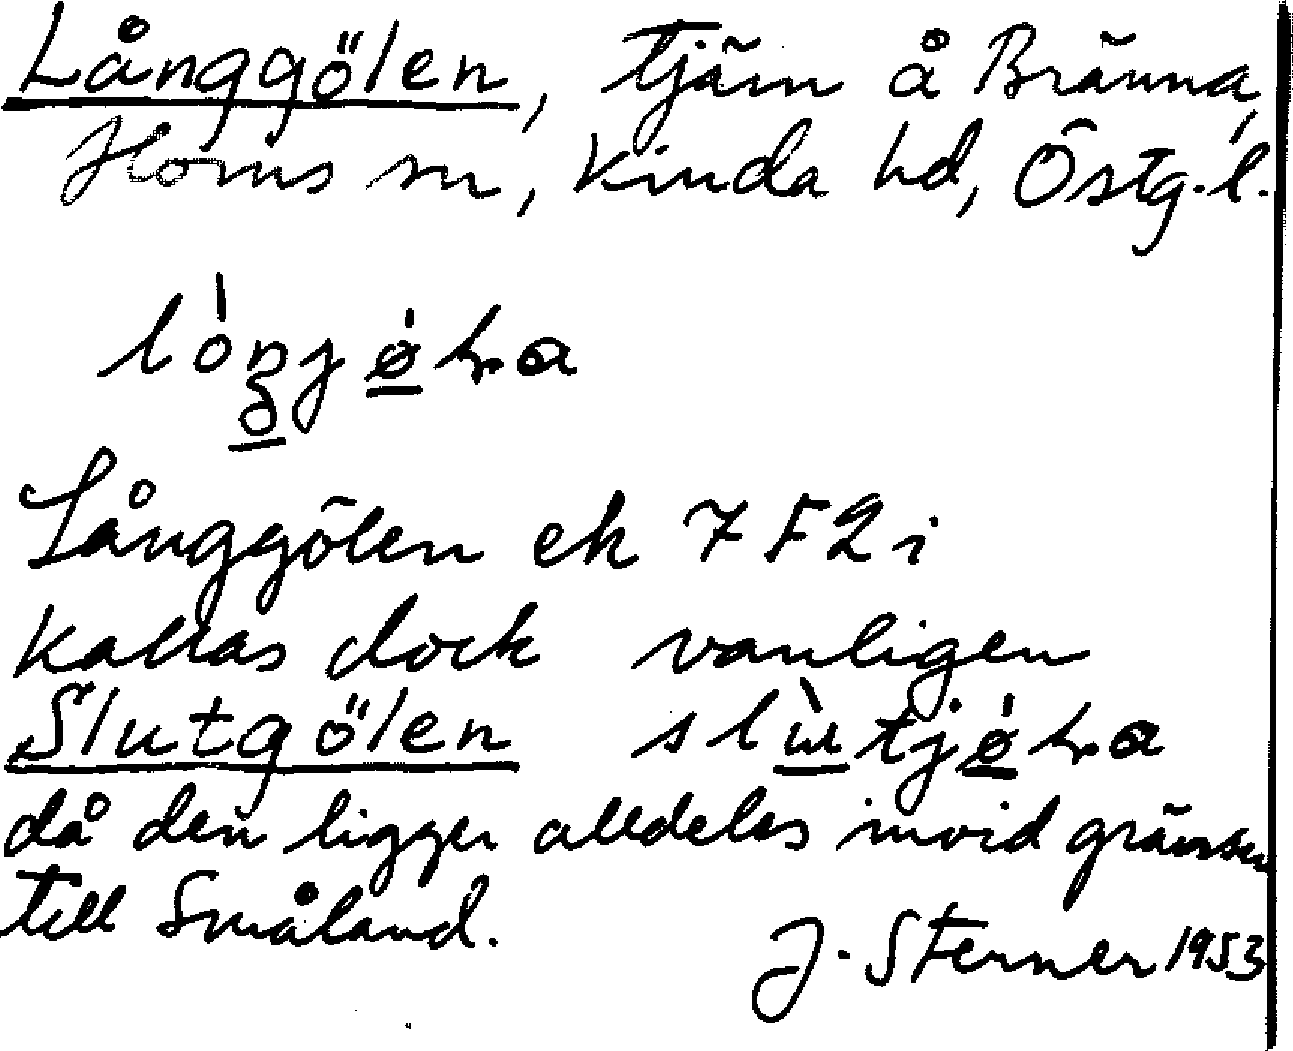 Långgölen, tjärn å Bränna,
Horns sn, Kinda hd, Östg.l.
Långgölen ek 7 F 2 i
kallas dock vanligen
Slutgölen
då den ligger alldeles invid gränsen
till Småland.
J. Sterner 1953